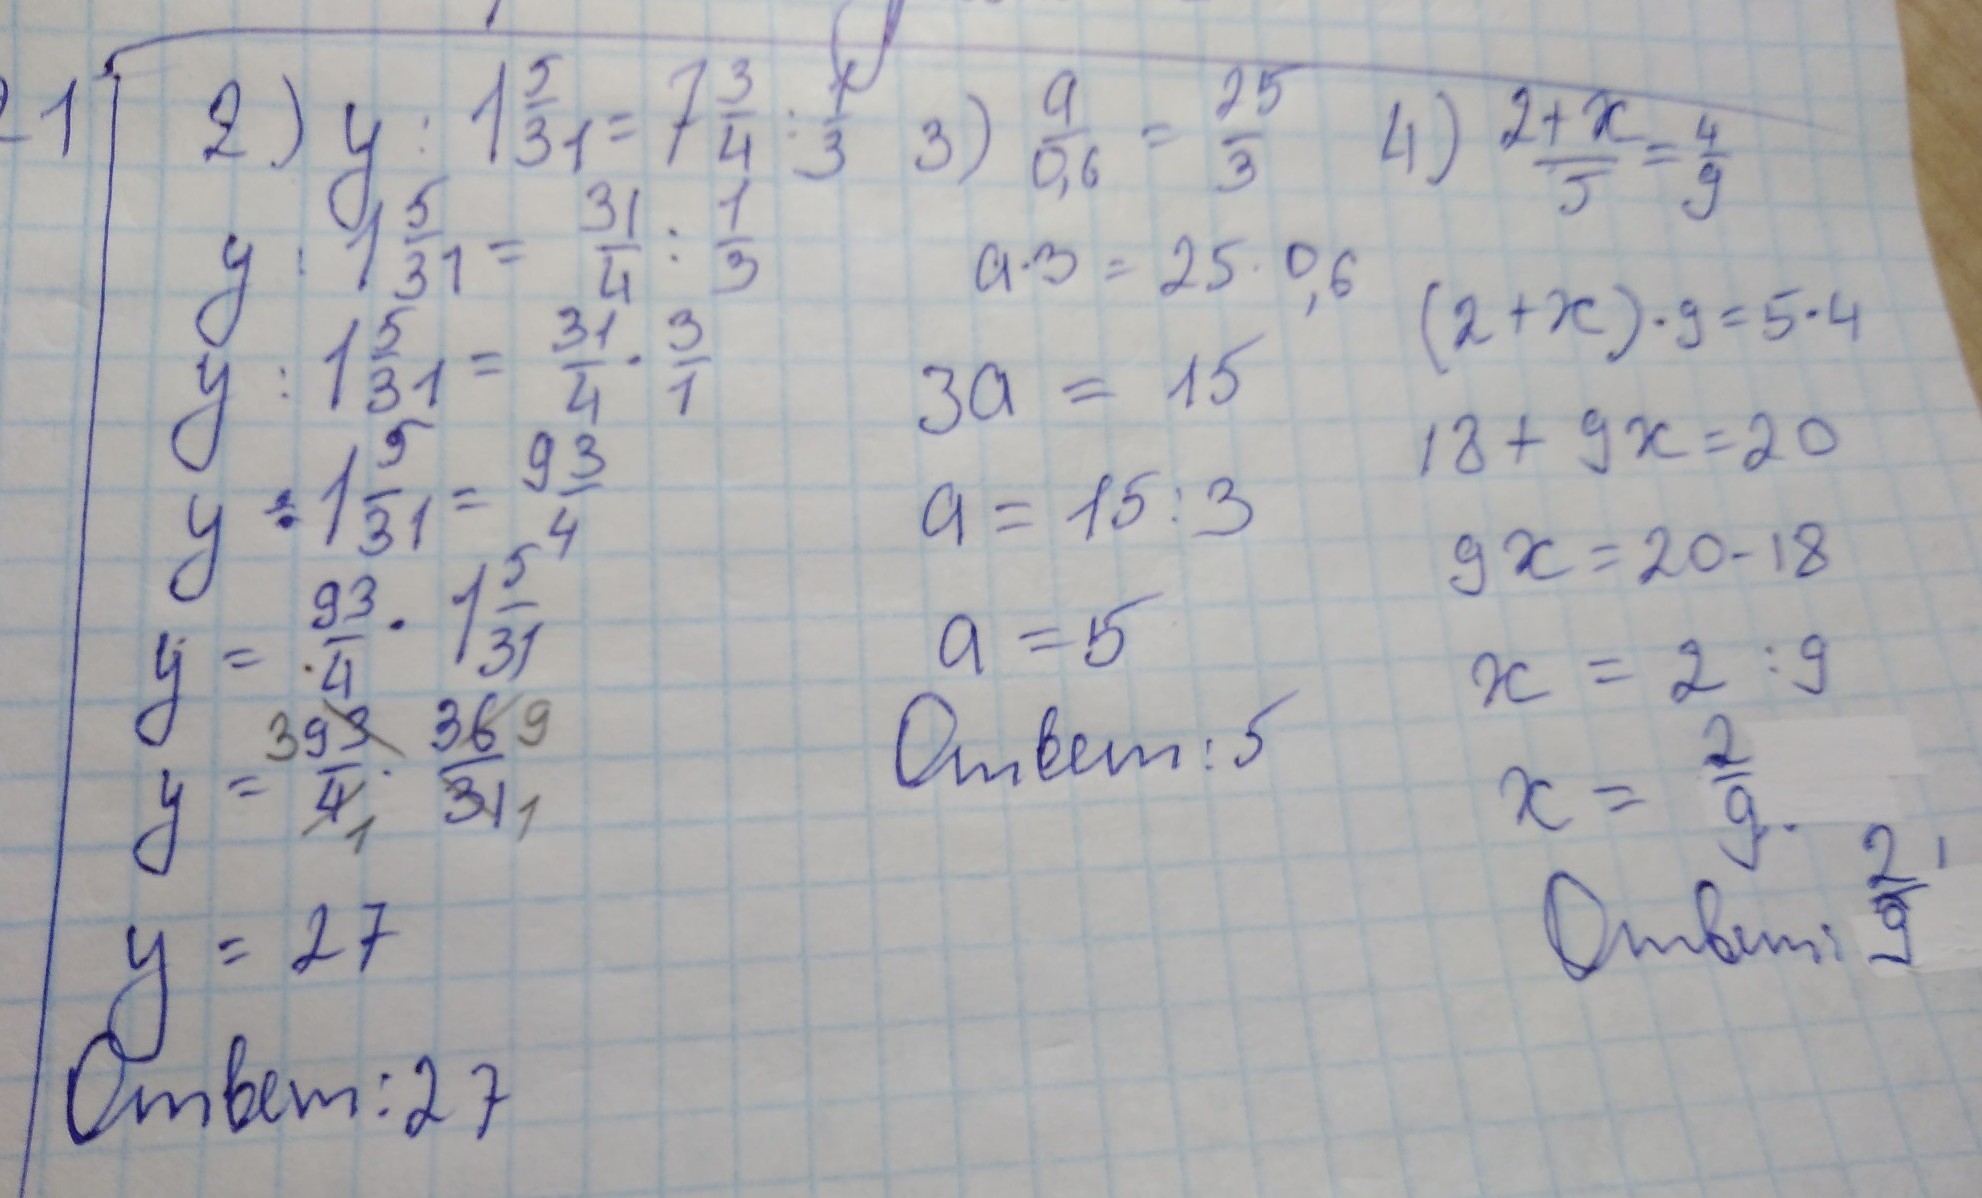 21
2) y : 1 5/31 = 7 3/4 : 1/3
y : 1 5/31 = 31/4 : 1/3
y : 1 5/31 = 31/4 · 3/1
y : 1 5/31 = 93/4
y = 93/4 · 1 5/31
y = 3 93/4 1 · 36 9/31 1
y = 27
Ответ: 27
3) a/0,6 = 25/3
a·3 = 25·0,6
3a = 15
a = 15 : 3
a = 5
Ответ: 5
4) 2+x/5 = 4/9
(2+x)·9=5·4
18 + 9x = 20
9x = 20-18
x = 2 : 9
x = 2/9.
Ответ: 2/9